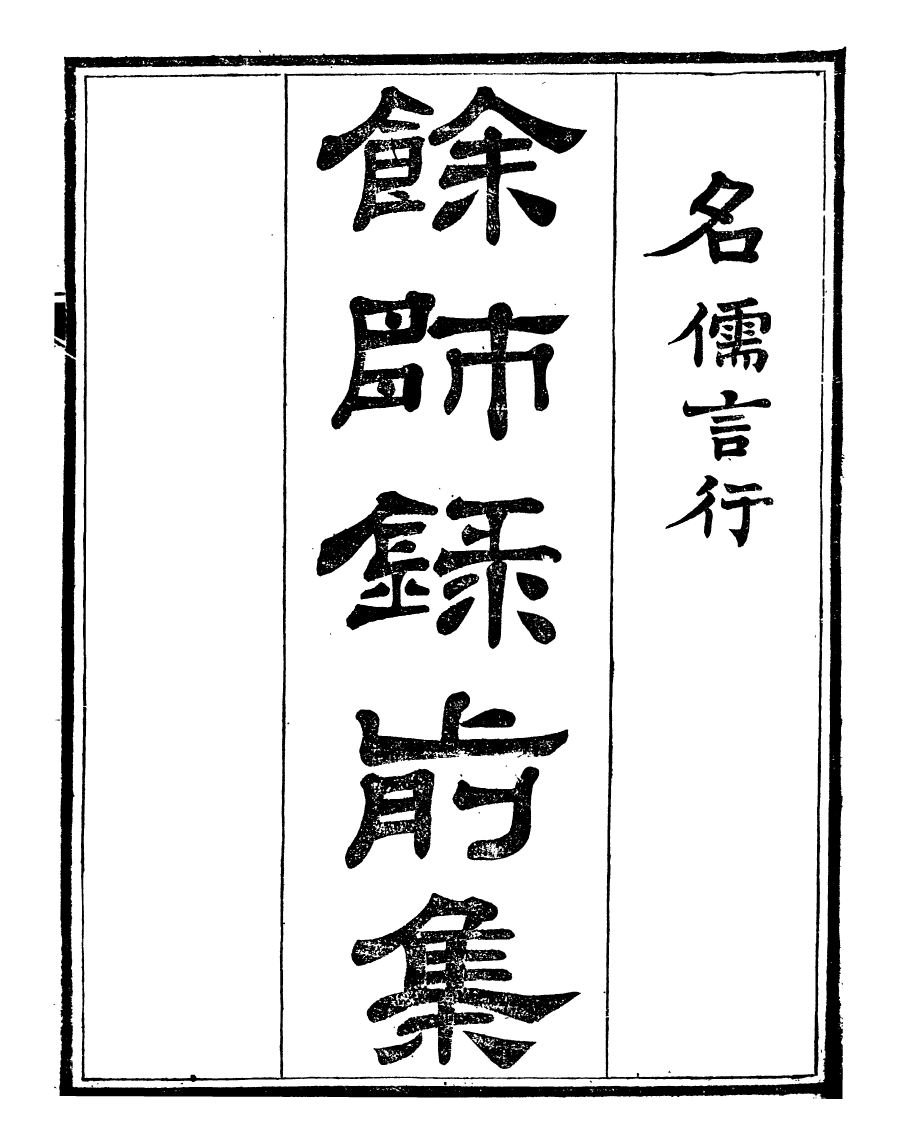 名儒言行
餘師録前集